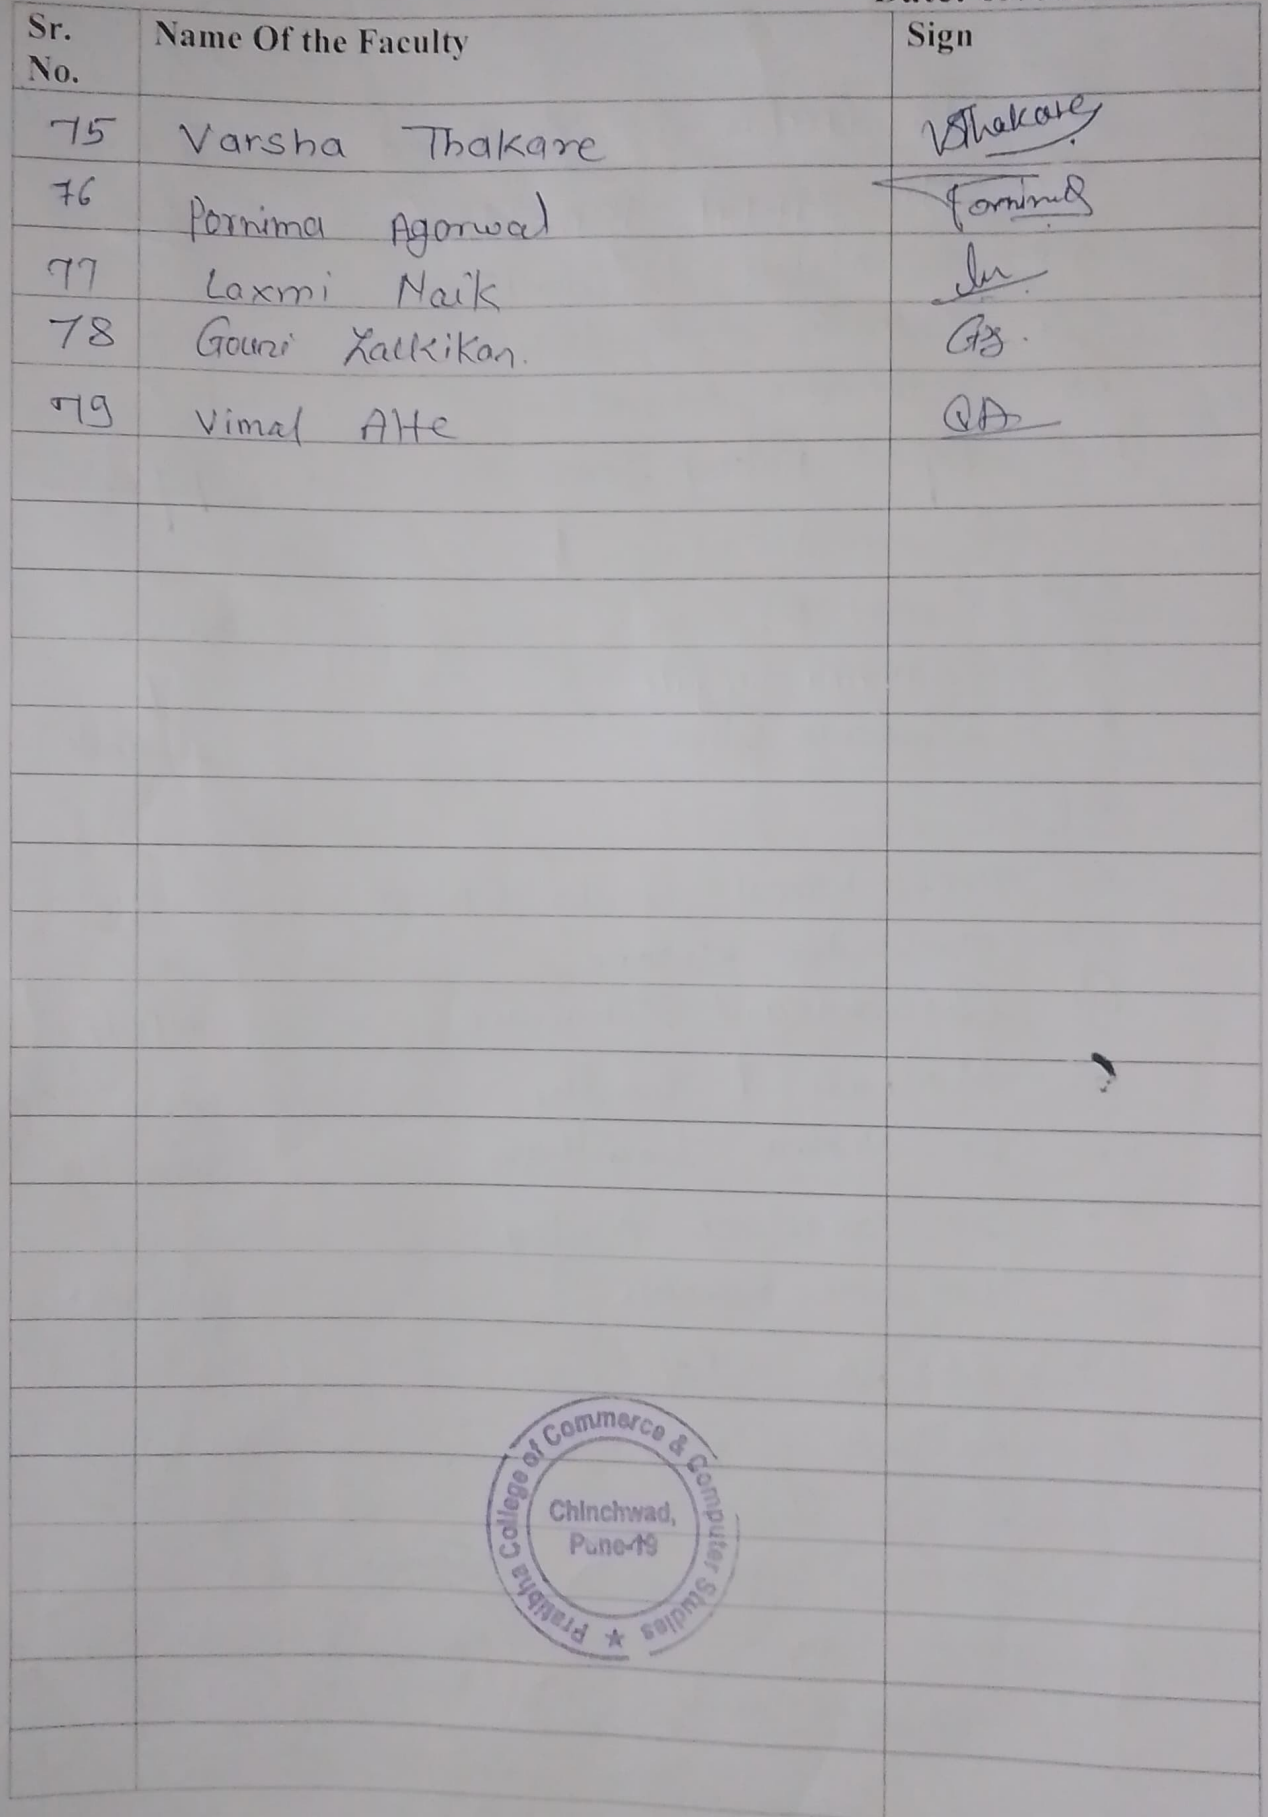 Sr. No. Name Of the Faculty Sign
75 Varsha Thakare VSThakare
76 Pornima Agarwal
77 Laxmi Naik
78 Gouri Zalkikar.
79 Vimal Alte
Pratibha College of Commerce & Computer Studies ★
Chinchwad,
Pune-19